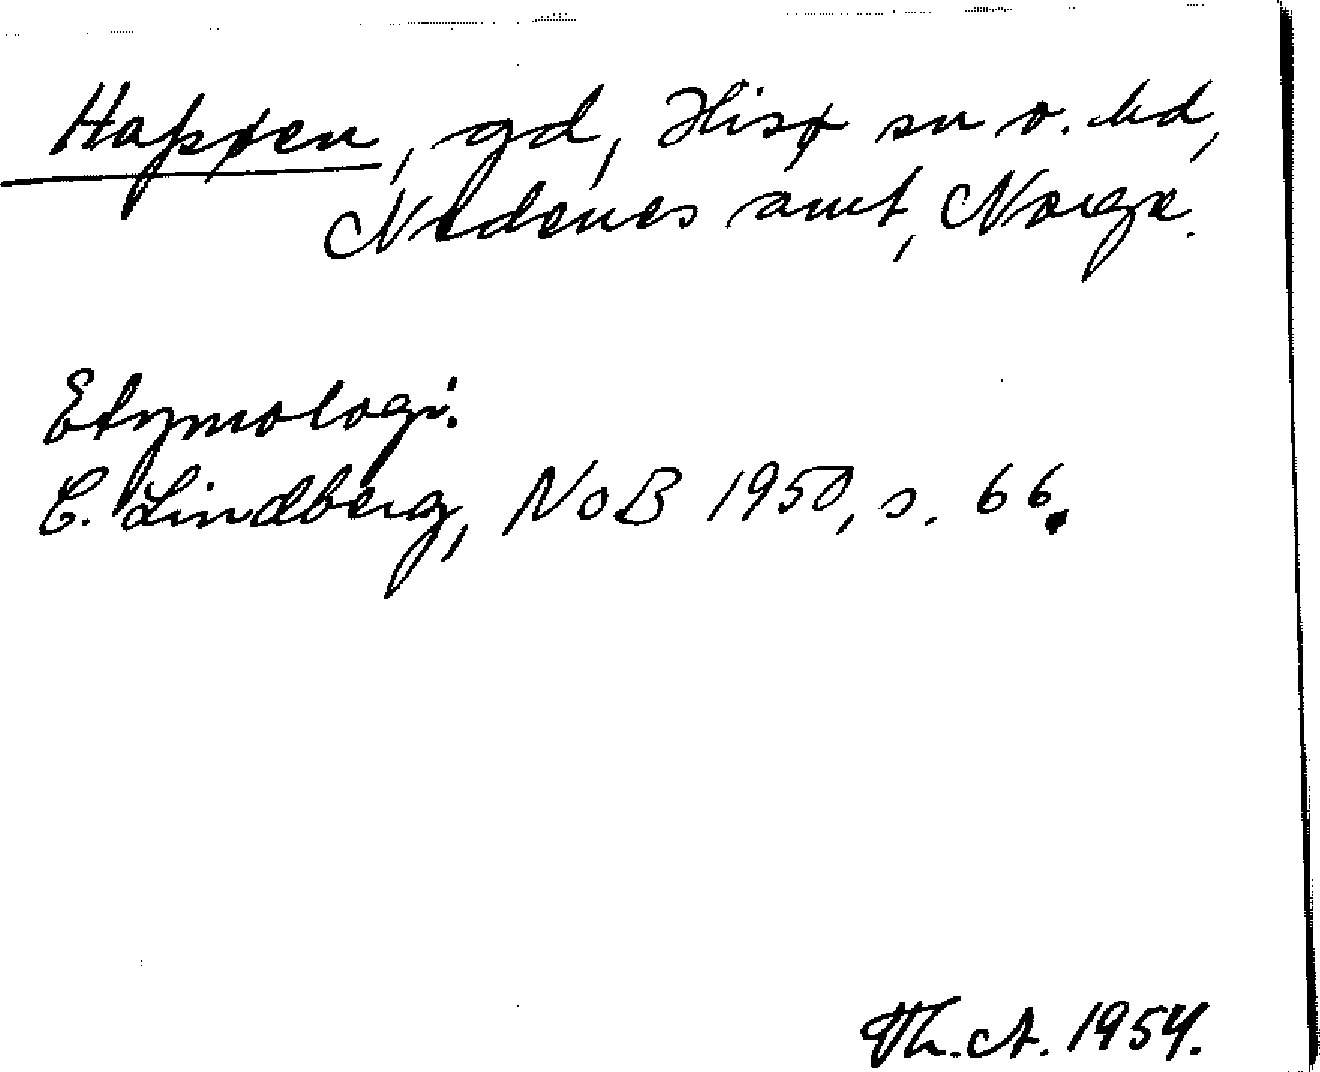 Hapsøen, gd, Hisø sn o. hd,
Nedenes amt, Norge.
Etymologi:
C. Lindberg, NoB 1950, s. 66.
Th. A. 1954.